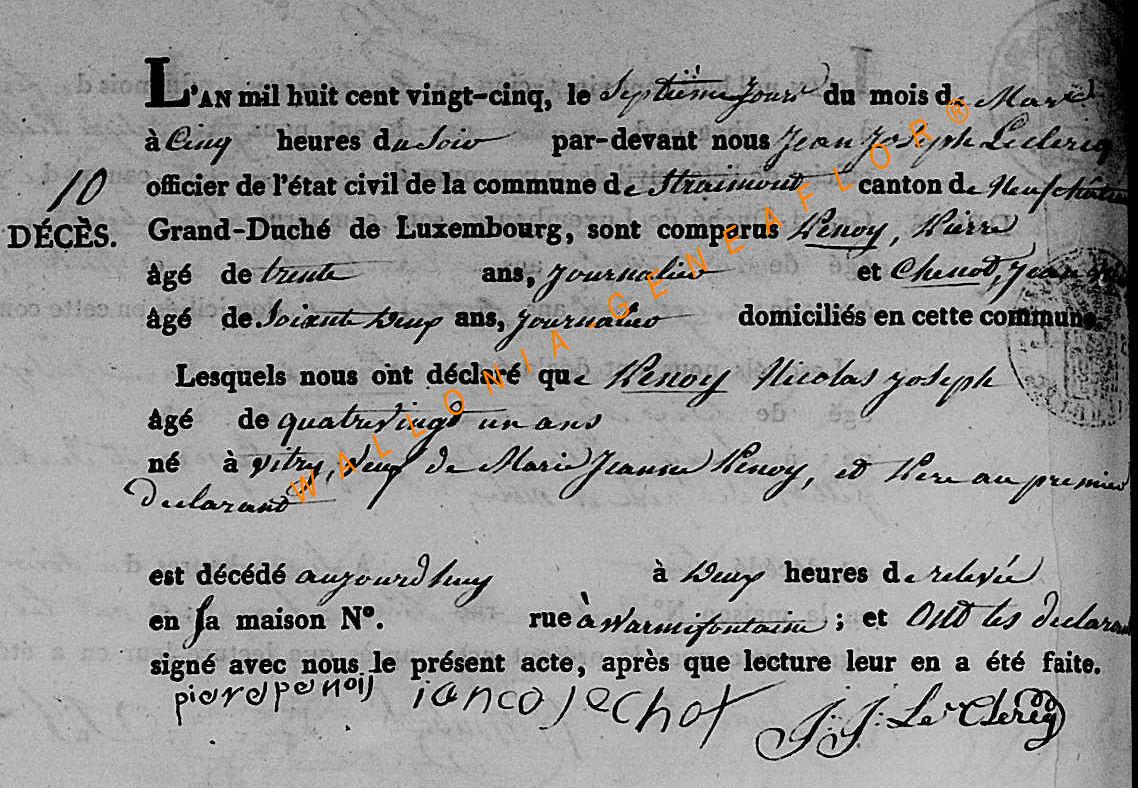 L'AN mil huit cent vingt-cinq, le Septième jour du mois de Mars
à Cinq heures du Soir par-devant nous Jean Joseph Leclercq
10
officier de l'état civil de la commune de Straimont canton de Neufchateau
DÉCÈS.
Grand-Duché de Luxembourg, sont comparus Penoy, Pierre
âgé de trente ans, Journalier et Chenot, Jean
âgé de Soixante deux ans, journalier domiciliés en cette commune.
Lesquels nous ont déclaré que Penoy Nicolas joseph
âgé de quatrevingt un ans
né à Vitry, veuf de Marie Jeanne Penoy, et Pere au premier
Declarant
est décédé aujourdhuy à deux heures de relevée
en sa maison N°. rue à Warmifontaine ; et Ont les declarants
signé avec nous le présent acte, après que lecture leur en a été faite.
pierd penoij J: J: Le Clercq
WALLONIA-GENEAFLOR®